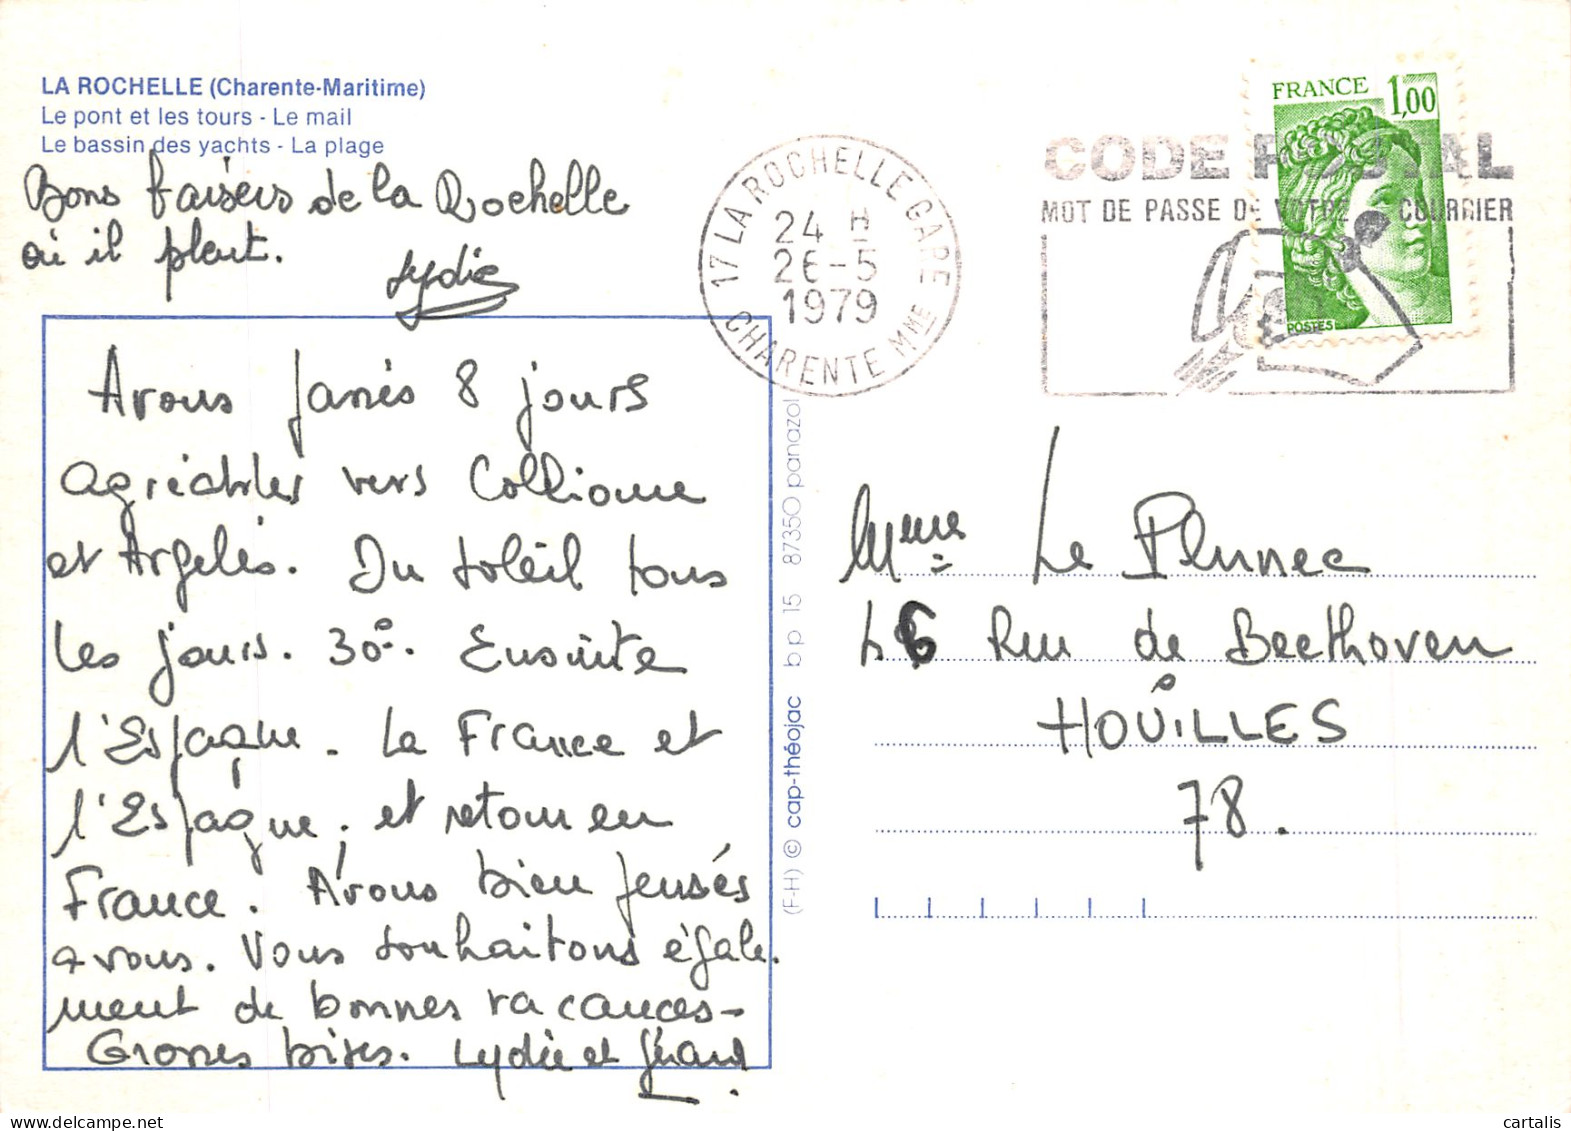 LA ROCHELLE (Charente-Maritime)
Le pont et les tours - Le mail
Le bassin des yachts - La plage
Bons baisers de La Rochelle
où il pleut.
Lydie
Avons passés 8 jours
agréables vers Collioure
et Argelès. Du soleil tous
les jours. 30°. Ensuite
l'Espagne. La France et
l'Espagne, et retour en
France. Avons bien pensés
a vous. Vous souhaitons égale.
ment de bonnes vacances-
Grosses bises. Lydie et Gérard.
17 LA ROCHELLE GARE
24 H
26-5
1979
CHARENTE MME
CODE POSTAL
MOT DE PASSE DE VOTRE COURRIER
FRANCE 1,00
POSTES
(F-H) © cap-théojac bp 15 87350 panazol
Mme Le Plunec
46 Rue de Beethoven
HOUILLES
78.
cartalis